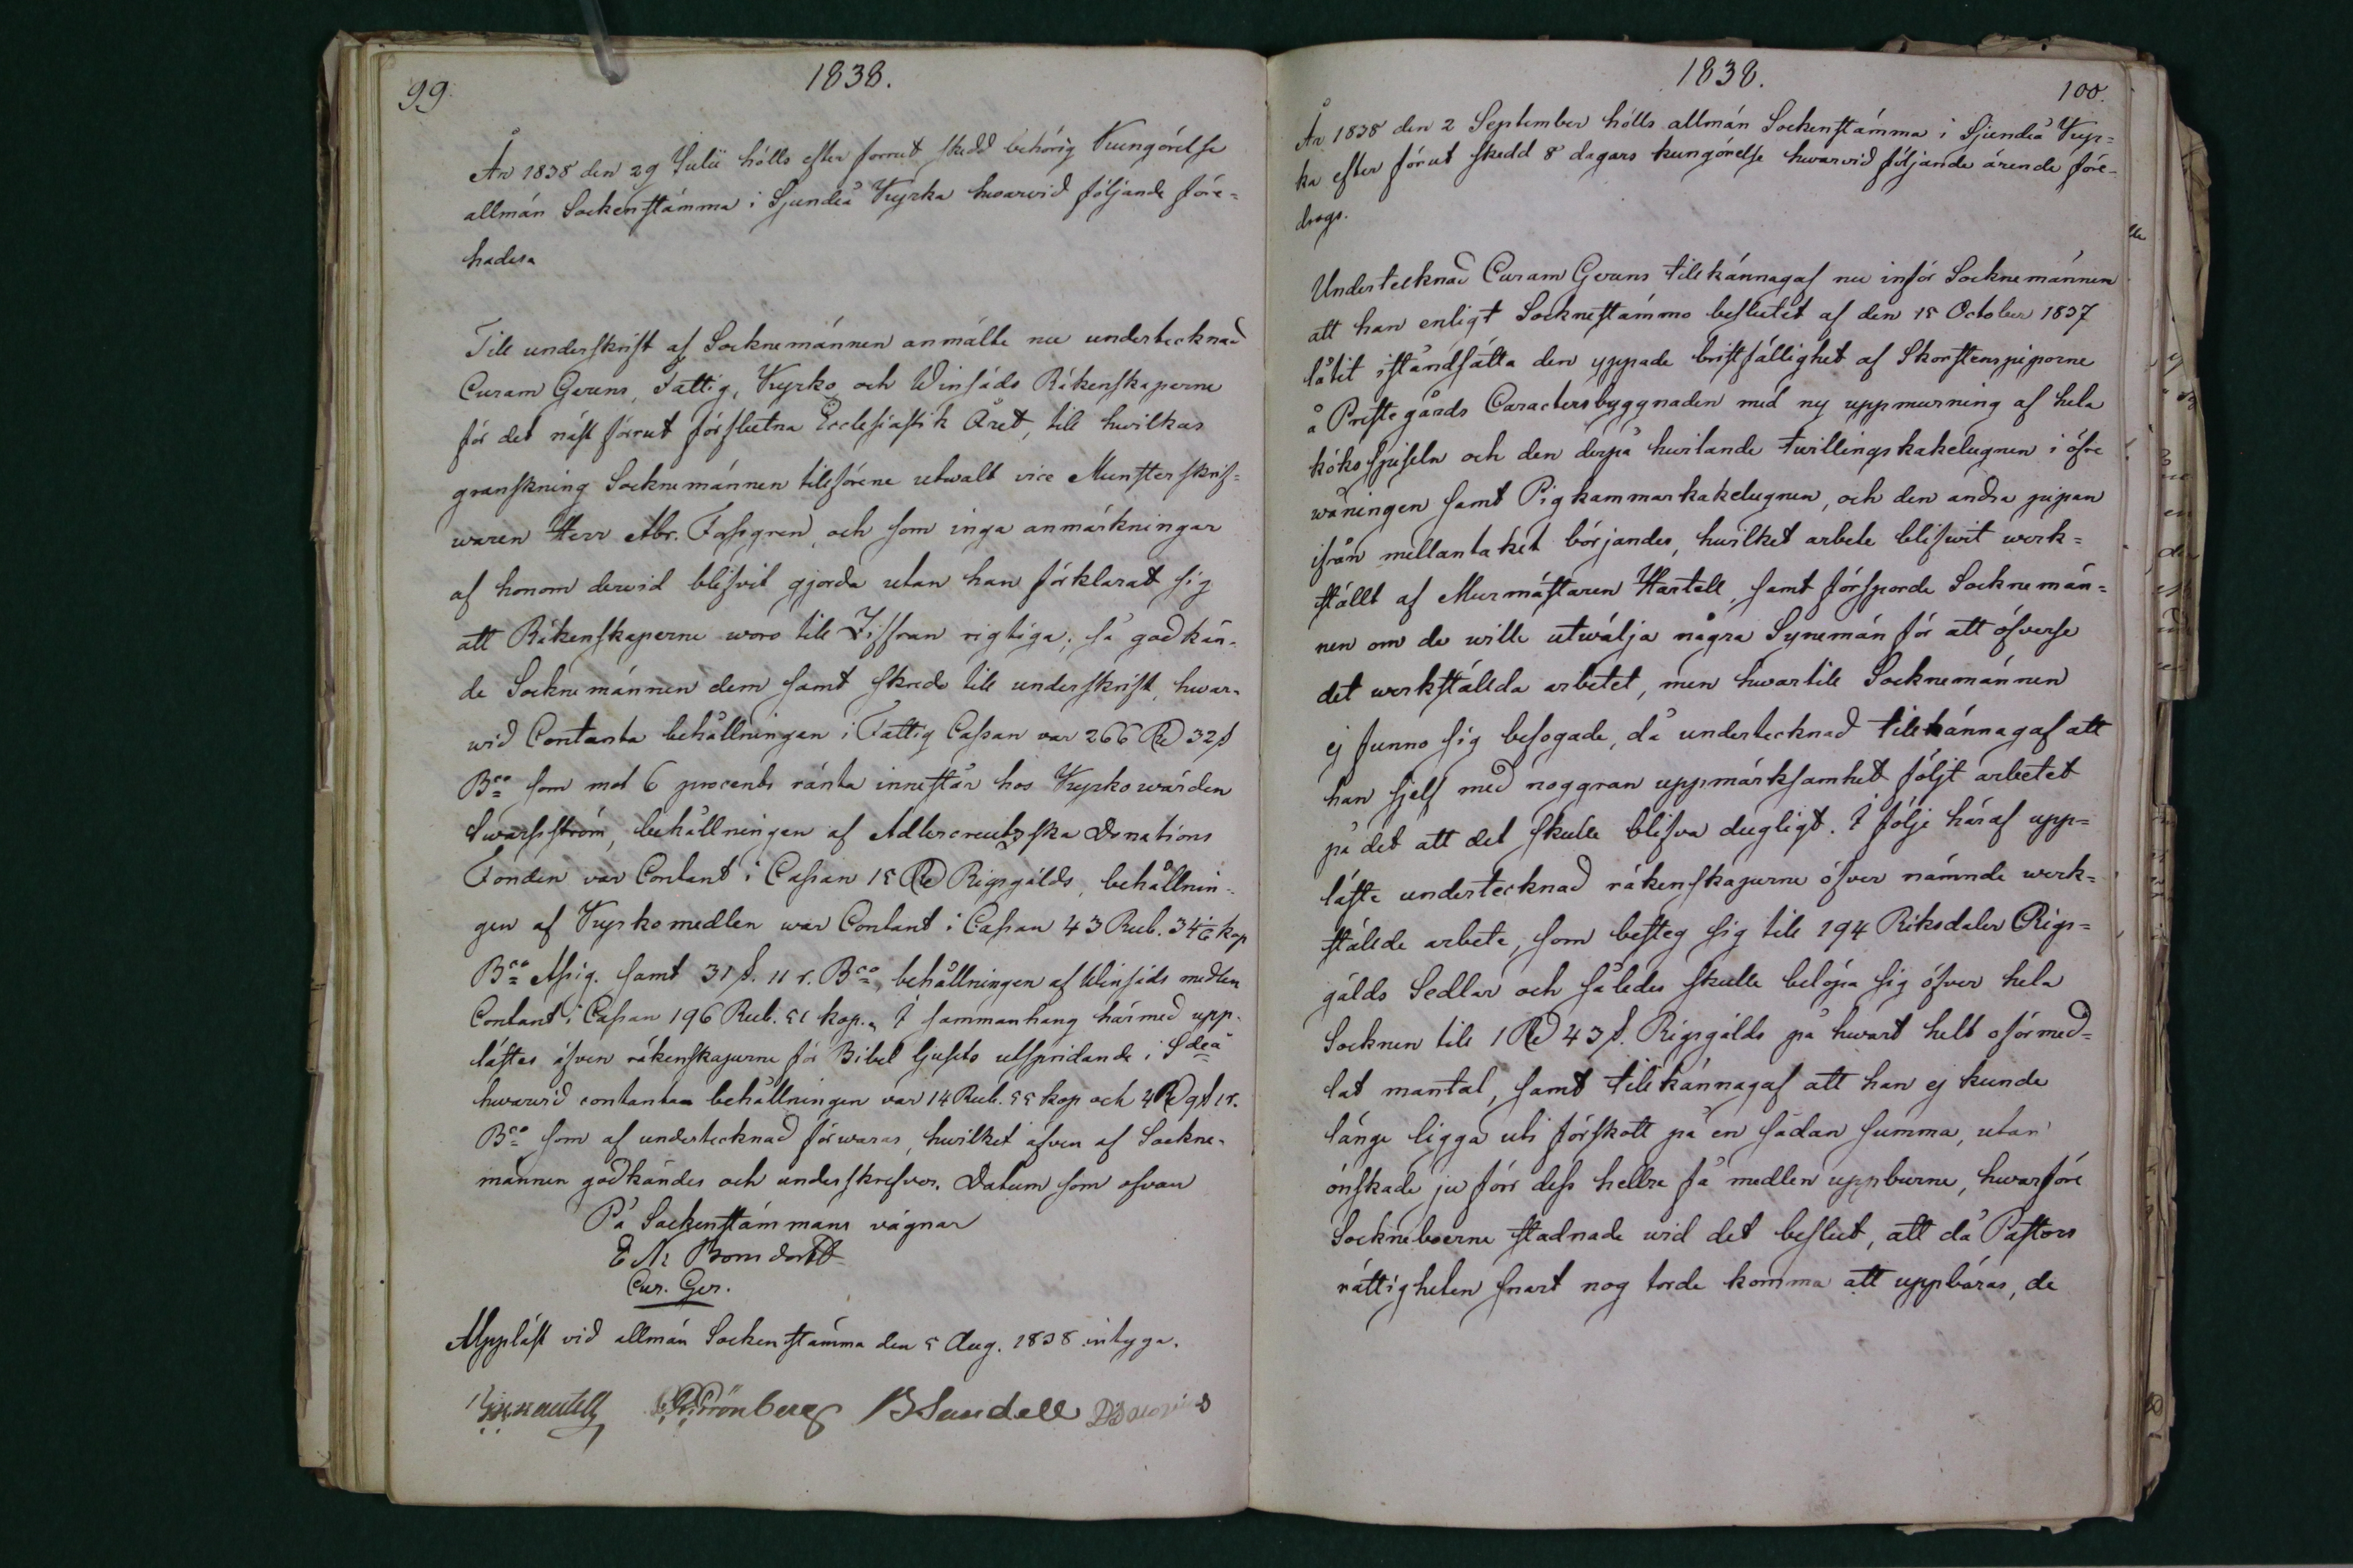 99.
1838.
År 1838 den 29 Julii hölls efter forrut skedd behörig Kungörelse
allmän Sockenstämma i Sjundeå Kyrka hwarvid följande före-
hades.
Till underskrift af Socknemännen anmälte nu undertecknad
Curam Gerens, Fattig, Kyrko och Winsäds Räkenskaperne
för det näst förrut förflutna Ecclesiastik Året, till hwilkas
granskning Socknemännen tillförene utwalt vice Munsterskrif-
waren Herr Abr. Forsgren, och som inga anmärkningar
af honom dervid blifvit gjorda utan han förklarat sig
att Räkenskaperne woro till Ziffran rigtiga; så godkän-
de Socknemännen dem samt skred till underskrift, hwar-
wid Contanta behållningen i Fattig Cassan var 266 Rd 32 s
Bco som mot 6 procents ränta innestår hos Kyrkowärden
Swartström, behållningen af Adlercreutzska Donations
Fonden var Contant i Cassan 15 Rd Rigsgälds, behållnin-
gen af Kyrkomedlen war Contant i Cassan 43 Rub. 34 1/6 kop
Bco Assig. samt 31 s. 11 r. Bco, behållningen af Winsäds medlen
Contant i Cassan 196 Rub. 51 kop. I sammanhang härmed upp-
lästes äfven räkenskaperne för Bibel ljusets utspridande i Sdeå
hwarvid contanta behållningen var 14 Rub. 55 kop och 4 Rd 9 s 1 r.
Bco som af undertecknad förwaras, hwilket äfven af Sockne-
männen godkändes och underskrefvos. Datum som ofvan
På Sockenstämmans vägnar
E N Bonsdorff
Cur. Ger.
Uppläst vid allmän Sockenstämma den 5 Aug. 1838 intyga.
Grönberg B Sundell
1838.
100.
År 1838 den 2 September hölls allmän Sockenstämma i Sjundeå Kyr-
ka efter förut skedd 8 dagars kungörelse hwarvid följande ärende före-
drogs.
Undertecknad Curam Gerens tillkännagaf nu inför Socknemännen
att han enligt Socknestämmo beslutet af den 15 October 1837
låtit iståndsätta den yppade bristfällighet af Skorstenspiporne
å Prestegårds Caractersbyggnaden med ny uppmurning af hela
köksspiseln och den derpå hvilande twillingskakelugnen i öfre
wåningen samt Pigkammarkakelugnen, och den andra pipan
ifrån mellantaket börjandes, hwilket arbete blifwit werk-
ställt af Murmästaren Hartell, samt försporde Socknemän-
nen om de wille utwälja några Synemän för att öfverse
det werkställda arbetet, men hwartill Socknemännen
ej funno sig befogade, då undertecknad tillkännagaf att
han sjelf med noggran uppmärksamhet följt arbetet
på det att det skulle blifva dugligt. I följe häraf upp-
läste undertecknad räkenskaperne öfver nämnde werk-
stälde arbete, som besteg sig till 194 Riksdaler Rigs-
gälds Sedlar och således skulle belöpa sig öfver hela
Socknen till 1 Rd 43 s. Rigsgälds på hwart helt oförmed-
lat mantal, samt tillkännagaf att han ej kunde
länge ligga uti förskott på en sådan summa, utan
önskade ju förr dess hellre få medlen uppburne, hwarföre
Sockneboerne stadnade wid det beslut, att då Pastors
rättigheten snart nog torde komma att uppbäras, de